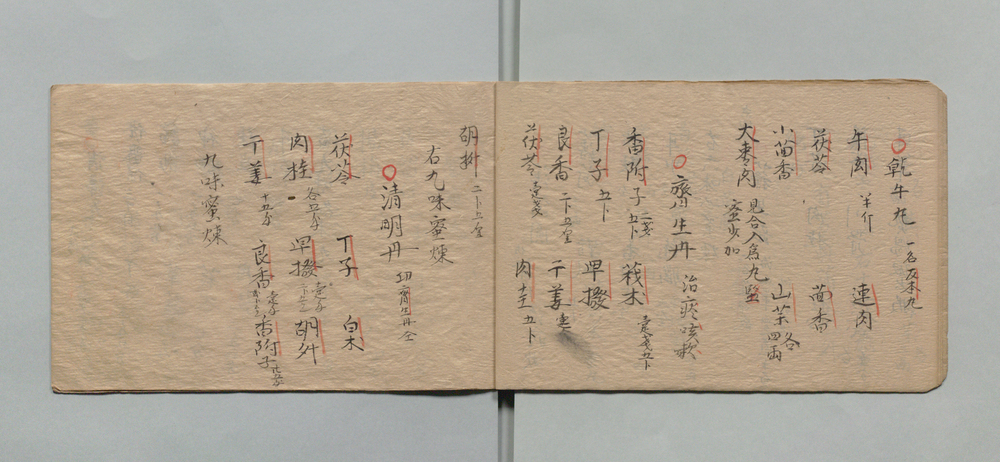 乾牛丸 一名反本丸
牛肉 半斤 連肉
茯苓 茴香
小茴香 山茱 各四両
大棗肉 見合入為丸 蜜少加
齊生丹 治痰咳
香附子 莪木
丁子 五卜 畢撥
良香 二卜五全 干姜
茯苓 肉桂 五卜
胡椒 二卜五全
右九味蜜煉
清明丹 功齊生丹仝
茯苓 丁子 白木
肉桂 各五分 畢撥 胡
干姜 十五分 良香 香附子
九味蜜煉